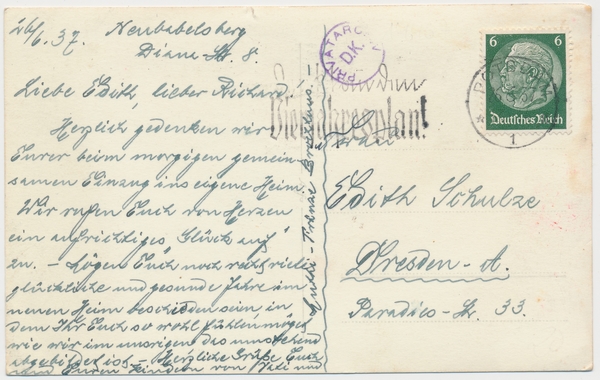 26/6.37. Neubabelsberg
Diane-St. 8.
Liebe Edith, lieber Richard!
Herzlich gedenken wir
Eurer beim morgigen gemein-
samen Einzug ins eigene Heim.
Wir rufen Euch von Herzen
ein aufrichtiges „Glück auf“
zu. – Mögen Euch noch recht viele
glückliche und gesunde Jahre im
neuen Heim beschieden sein, in
dem Ihr Euch so wohl fühlen möget
wie wir im unsrigen das umstehend
abgebildet ist. – Herzliche Grüße Euch
und Euren Kindern von Vati und
Mutti
PRIVATARCHIV
D.K.
den
Vierjahresplan!
6 6
Deutsches Reich
POTSDAM
1
Frau
Edith Schulze
Dresden-A.
Paradies-St. 33.